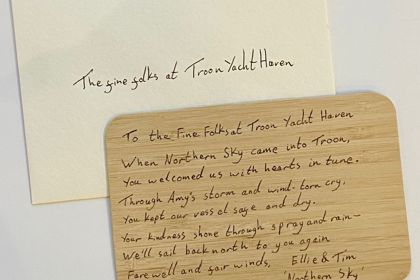 The fine folks at Troon Yacht Haven
To the Fine Folks at Troon Yacht Haven
When Northern Sky came into Troon,
You welcomed us with hearts in tune.
Through Amy's storm and wind-torn cry,
You kept our vessel safe and dry.
Your kindness shone through spray and rain—
We'll sail back north to you again
Farewell and fair winds, Ellie & Tim
'Northern Sky'